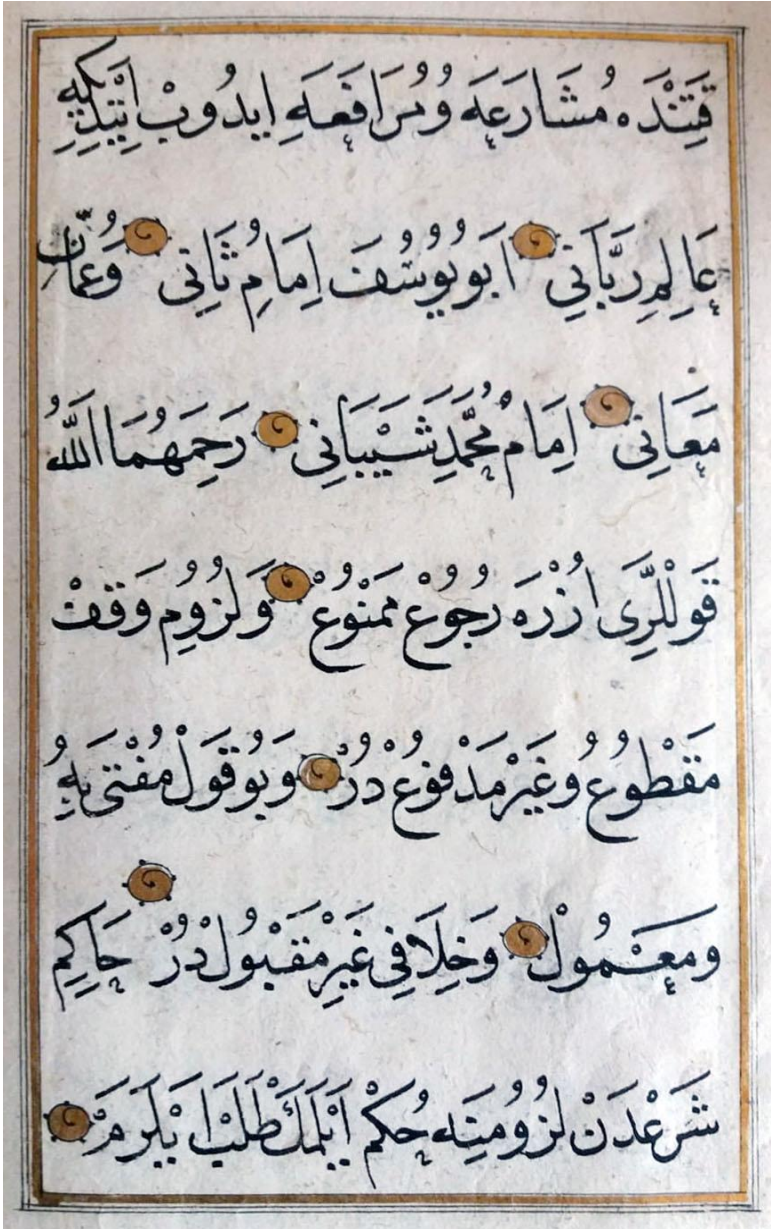 قَتِنْدَه مُشَارَعَه وُمُرَافَعَهِ ايدُوبْ اِيتْدِيكِه
عَالِمِ رَبَّانِي ابو يُوسُفَ اِمَامِ ثَانِي وَعُمَّانِ
مَعَانِي اِمَامْ مُحَمَّدِ شَيْبَانِي رَحِمَهُمَا اللّٰه
قَوْللَرِى اُزْرَه رُجُوعْ مَمْنُوعْ وَلُزُومِ وَقفْ
مَقْطُوعُ وغَيْرِ مَدْفُوعْ دُرْ وَبُو قَوْل مُفْتَى بِهِ
ومَعْمُولْ وَخِلَافِى غَيْرِ مَقبُولْ دُرْ حَاكِمِ
شَرْعْدَنْ لُزُومِنَه حُكْم اَيْلَمَكْ طَلَبْ اَيْلَرَمْ